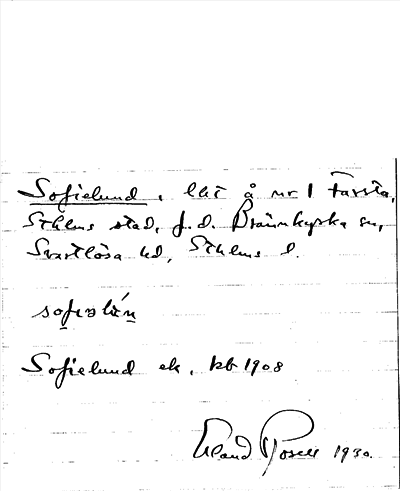 Sofielund, lht å nr 1 Farsta,
Sthlms stad, f.d. Brännkyrka sn,
Svartlösa hd, Sthlms l.
sofiəlún
Sofielund ek. kb 1908
Eland Rosell 1930.